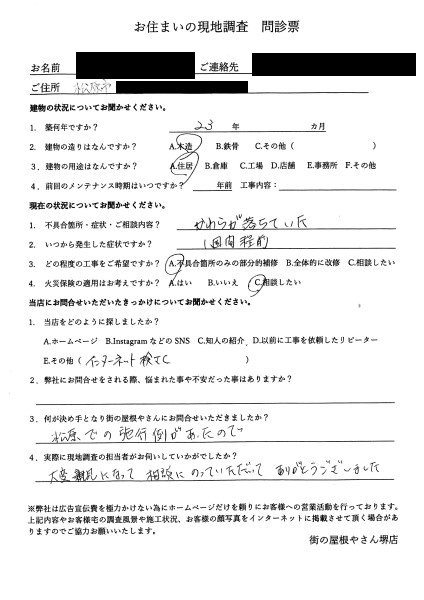 お住まいの現地調査 問診票
お名前 ご連絡先
ご住所 松原市
建物の状況についてお聞かせください。
1. 築何年ですか? 23 年 カ月
2. 建物の造りはなんですか? A.木造 B.鉄骨 C.その他( )
3. 建物の用途はなんですか? A.住居 B.倉庫 C.工場 D.店舗 E.事務所 F.その他
4. 前回のメンテナンス時期はいつですか? 年前 工事内容:
現在の状況についてお聞かせください。
1. 不具合箇所・症状・ご相談内容? かわらが落ちていた
2. いつから発生した症状ですか? 1週間程前
3. どの程度の工事をご希望ですか? A.不具合箇所のみの部分的補修 B.全体的に改修 C.相談したい
4. 火災保険の適用はお考えですか? A.はい B.いいえ C.相談したい
当店にお問合せいただいたきっかけについてお聞かせください。
1. 当店をどのように探しましたか?
A.ホームページ B.InstagramなどのSNS C.知人の紹介 D.以前に工事を依頼したリピーター
E.その他( インターネット検索 )
2. 弊社にお問合せをされる際、悩まれた事や不安だった事はありますか?
3. 何が決め手となり街の屋根やさんにお問合せいただきましたか?
松原での施行例があったので
4. 実際に現地調査の担当者がお伺いしていかがでしたか?
大変親身になって 相談にのっていただいて ありがとうございました
※弊社は広告宣伝費を極力かけない為にホームページだけを頼りにお客様への営業活動を行っております。
上記内容やお客様宅の調査風景や施工状況、お客様の顔写真をインターネットに掲載させて頂く場合があ
りますのでご協力お願いいたします。
街の屋根やさん堺店